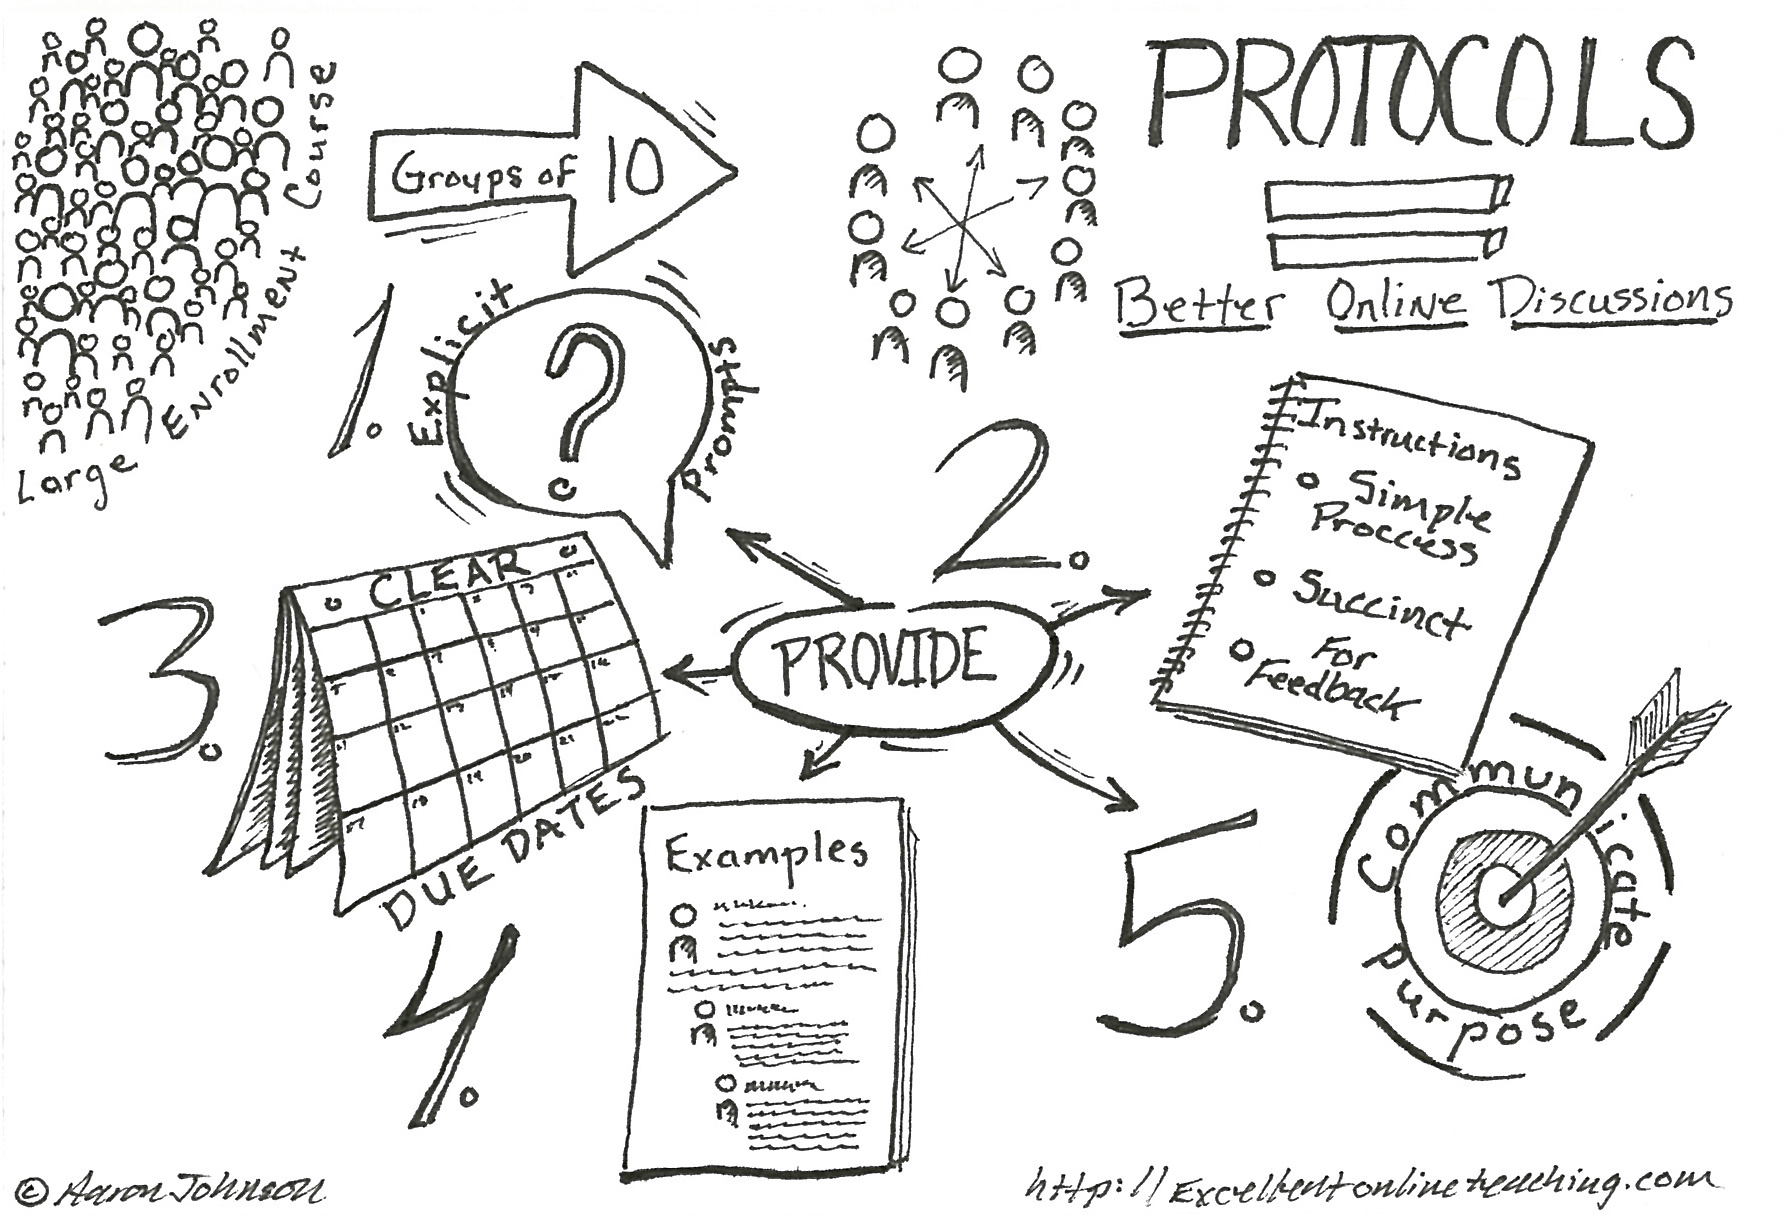 Large Enrollment Course
Groups of 10
PROTOCOLS
=
Better Online Discussions
1.
Explicit Prompts
?
2.
Instructions
Simple
Proccess
Succinct
For
Feedback
3.
CLEAR
DUE DATES
PROVIDE
4.
Examples
5.
Communicate
Purpose
© Aaron Johnson
http://Excellentonlineteaching.com